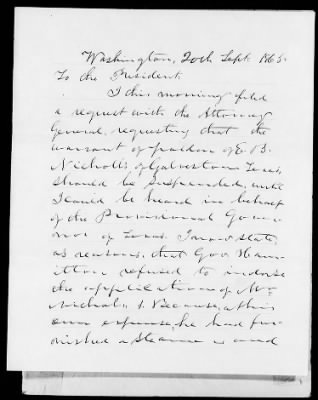 Washington, 20th Sept. 1865.
To the President
I this morning filed
a request with the Attorney
General, requesting that the
warrant of pardon of E. B.
Nicholls of Galveston Texas,
should be suspended, until
I could be heard in behalf
of the Provisional Gover-
nor of Texas. I now state,
as reasons, that Gov. Ham-
ilton refused to indorse
the application of Mr
Nichols, 1. Because, at his
own expense, he had fur-
nished a Steamer